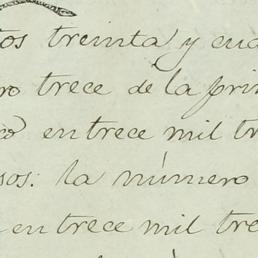 tos treinta y cua
ro trece de la prin
co en trece mil tr
sos: la número
en trece mil tre